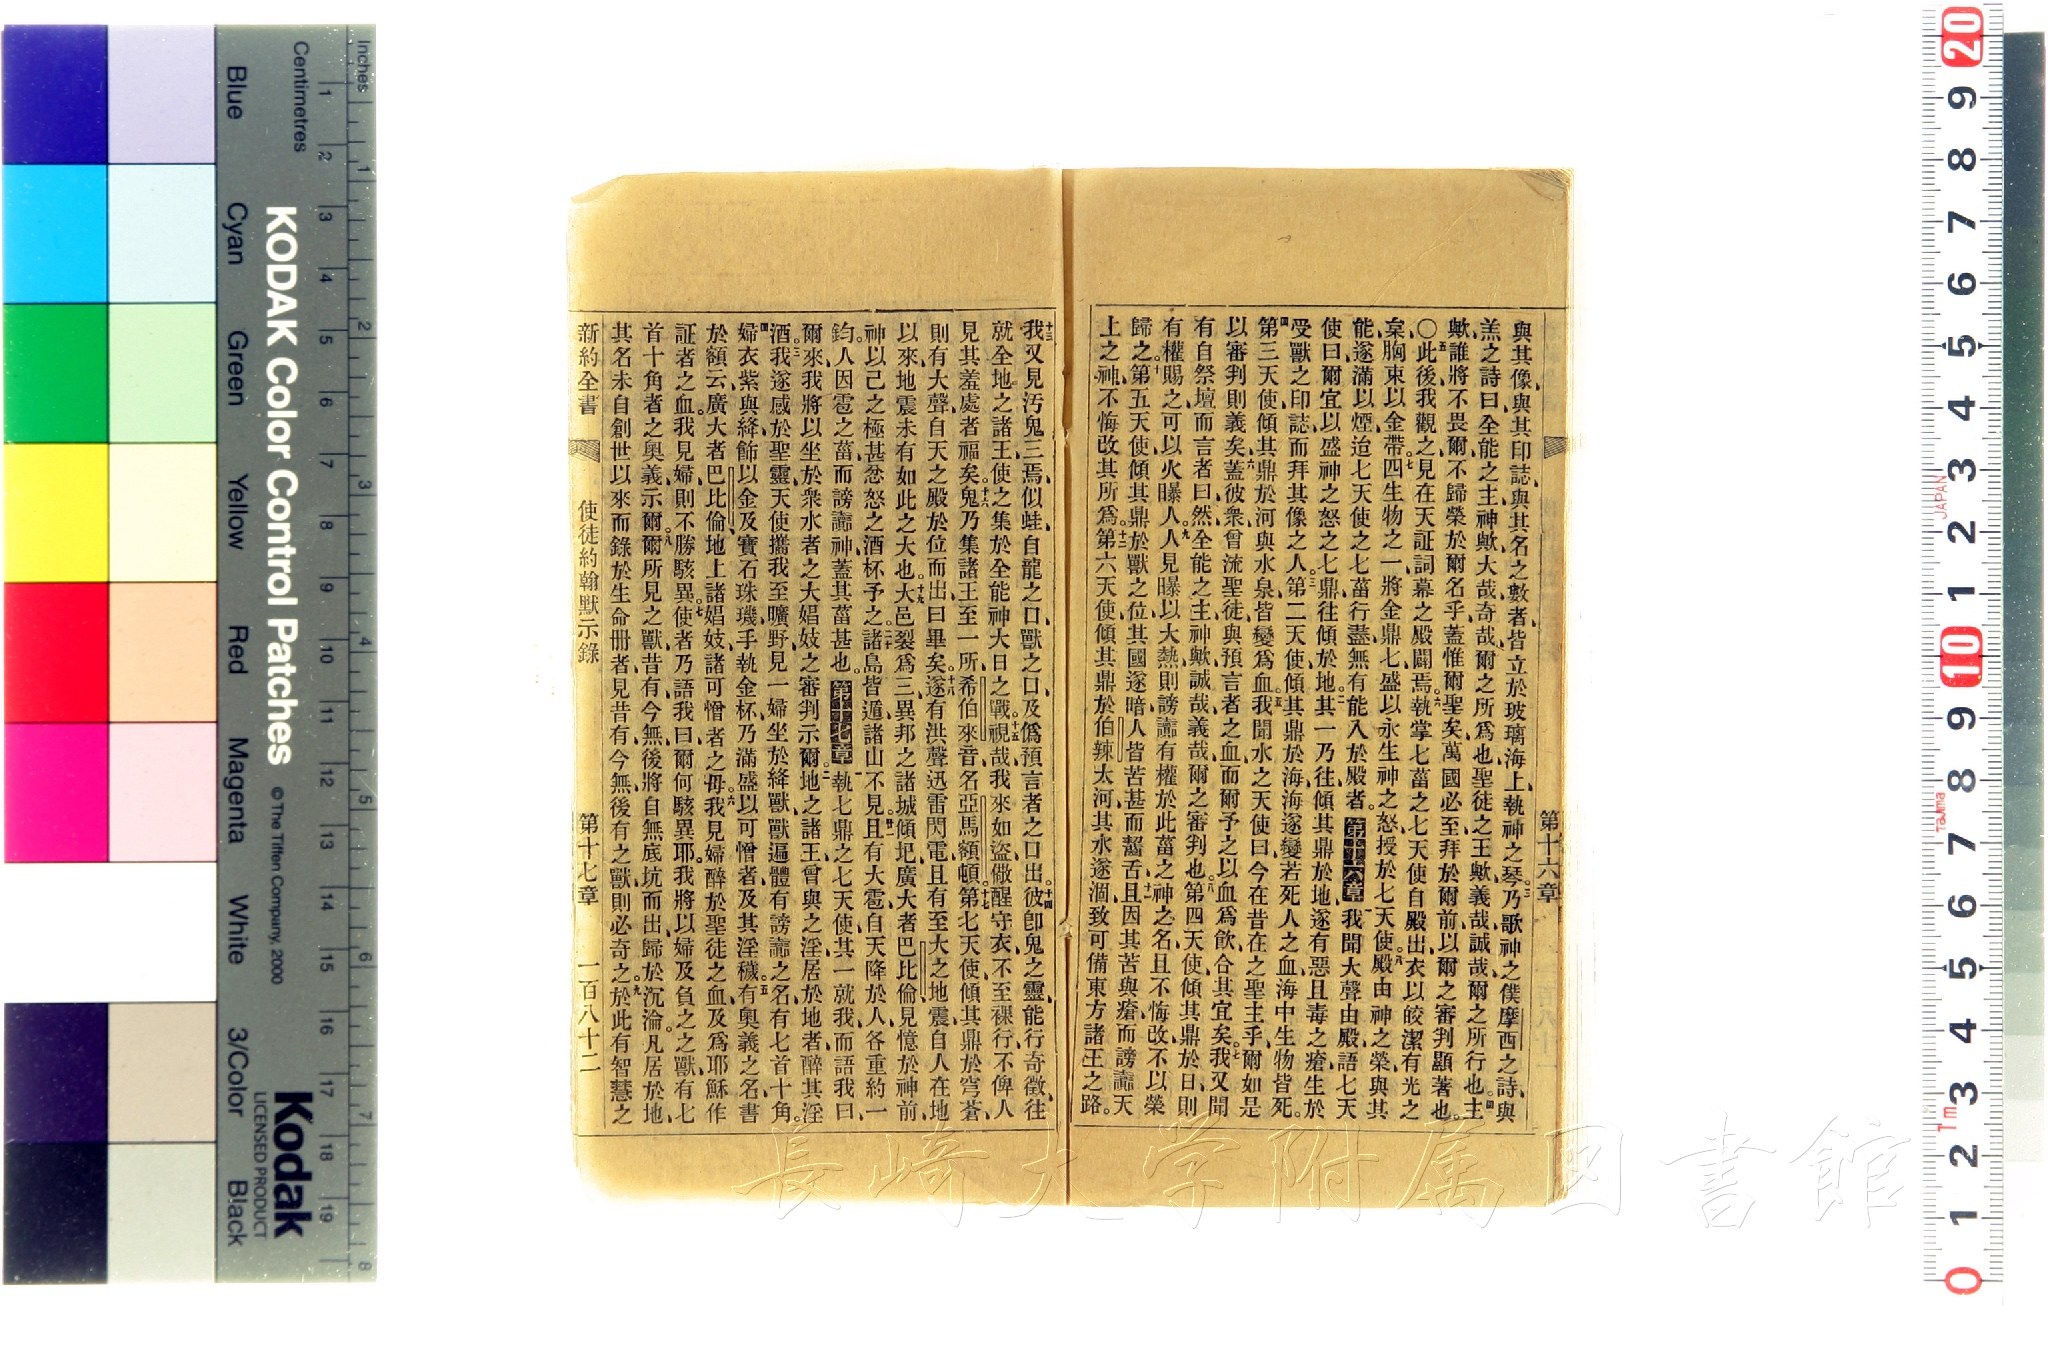 與其像、與其印誌、與其名之數者、皆立於玻璃海上、執神之琴、乃歌神之僕摩西之詩、與
羔之詩曰、全能之王神歟、大哉奇哉、爾之所爲也、聖徒之王歟、義哉誠哉、爾之所行也、主
歟、誰將不畏爾、不歸榮於爾名乎、蓋惟爾聖矣、萬國必至、拜於爾前、以爾之審判顯著也。
〇此後我觀之、見在天証詞幕之殿闢焉、執掌七菑之七天使、自殿出、衣以皎潔有光之
枲、胸束以金帶。四生物之一、將金鼎七、盛以永生神之怒、授於七天使。殿由神之榮與其
能、遂滿以煙、迨七天使之七菑行盡、無有能入於殿者。第十六章我聞大聲由殿語七天
使曰、爾宜以盛神之怒之七鼎、往傾於地。其一乃往、傾其鼎於地、遂有惡且毒之瘡、生於
受獸之印誌、而拜其像之人。第二天使、傾其鼎於海、海遂變若死人之血、海中生物皆死。
第三天使、傾其鼎於河與水泉、皆變爲血。我聞水之天使曰、今在昔在之聖主乎、爾如是
以審判、則義矣、蓋彼衆曾流聖徒與預言者之血、而爾予之以血爲飲、合其宜矣。我又聞
有自祭壇而言者曰、然、全能之主神歟、誠哉義哉、爾之審判也。第四天使、傾其鼎於日、則
有權賜之、可以火曝人。人見曝以大熱、則謗讟有權於此菑之神之名、且不悔改、不以榮
歸之。第五天使、傾其鼎於獸之位、其國遂暗、人皆苦甚而齧舌、且因其苦與瘡、而謗讟天
上之神、不悔改其所爲。第六天使、傾其鼎於伯辣大河、其水遂涸、致可備東方諸王之路。
第十六章
我又見汚鬼三焉、似蛙、自龍之口、獸之口、及僞預言者之口出。彼卽鬼之靈、能行奇徵、往
就全地之諸王、使之集於全能神大日之戰。視哉、我來如盜、儆醒守衣、不至裸行、不俾人
見其羞處者、福矣。鬼乃集諸王至一所、希伯來音名亞馬額頓。第七天使、傾其鼎於穹蒼、
則有大聲自天之殿於位而出曰、畢矣。遂有洪聲迅雷閃電、且有至大之地震、自人在地
以來、地震未有如此之大也。大邑裂爲三、異邦之諸城傾圮、廣大者巴比倫、見憶於神前、
神以己之極甚忿怒之酒杯予之。諸島皆遁、諸山不見。且有大雹自天降於人、各重約一
鈞、人因雹之菑而謗讟神、蓋其菑甚也。第十七章執七鼎之七天使其一、就我而語我曰、
爾來、我將以坐於衆水者之大娼妓之審判示爾。地之諸王曾與之淫、居於地者、醉其淫
酒。我遂感於聖靈、天使攜我至曠野、見一婦坐於絳獸、獸遍體有謗讟之名、有七首十角。
婦衣紫與絳、飾以金及寶石珠璣、手執金杯、乃滿盛以可憎者、及其淫穢。有奧義之名書
於額云、廣大者巴比倫、地上諸娼妓諸可憎者之母。我見婦醉於聖徒之血、及爲耶穌作
証者之血、我見婦、則不勝駭異。使者乃語我曰、爾何駭異耶、我將以婦及負之之獸、有七
首十角者之奧義示爾。爾所見之獸、昔有今無、後將自無底坑而出、歸於沉淪。凡居於地、
其名未自創世以來、而錄於生命冊者、見昔有今無後有之獸、則必奇之。於此有智慧之
新約全書 使徒約翰默示錄 第十七章 一百八十二
長崎大学附属図書館
Inches
Centimetres
KODAK Color Control Patches
© The Tiffen Company, 2000
Blue Cyan Green Yellow Red Magenta White 3/Color Black
Kodak
LICENSED PRODUCT
JAPAN
Tajima